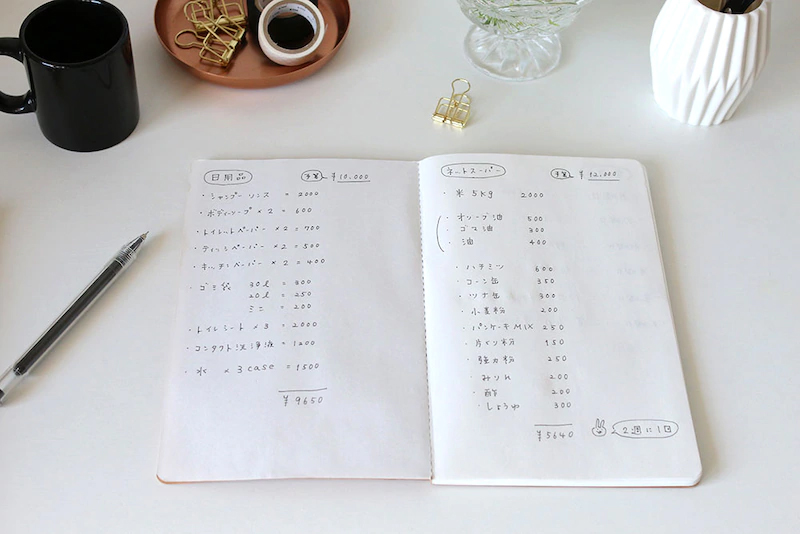 日用品 予算 ¥10,000
・シャンプー リンス = 2000
・ボディソープ × 2 = 600
・トイレットペーパー × 2 = 700
・ティッシュペーパー × 2 = 500
・キッチンペーパー × 2 = 400
・ゴミ袋 30ℓ = 300
20ℓ = 250
ミニ = 200
・トイレシート × 3 = 2000
・コンタクト洗浄液 = 1200
・水 × 3 case = 1500
¥9650
ネットスーパー 予算 ¥12,000
・米 5kg 2000
・オリーブ油 500
・ゴマ油 300
・油 400
・ハチミツ 600
・コーン缶 350
・ツナ缶 300
・小麦粉 200
・パンケーキMIX 250
・片クリ粉 150
・強力粉 250
・みりん 200
・酢 200
・しょうゆ 300
¥5640
2週に1回